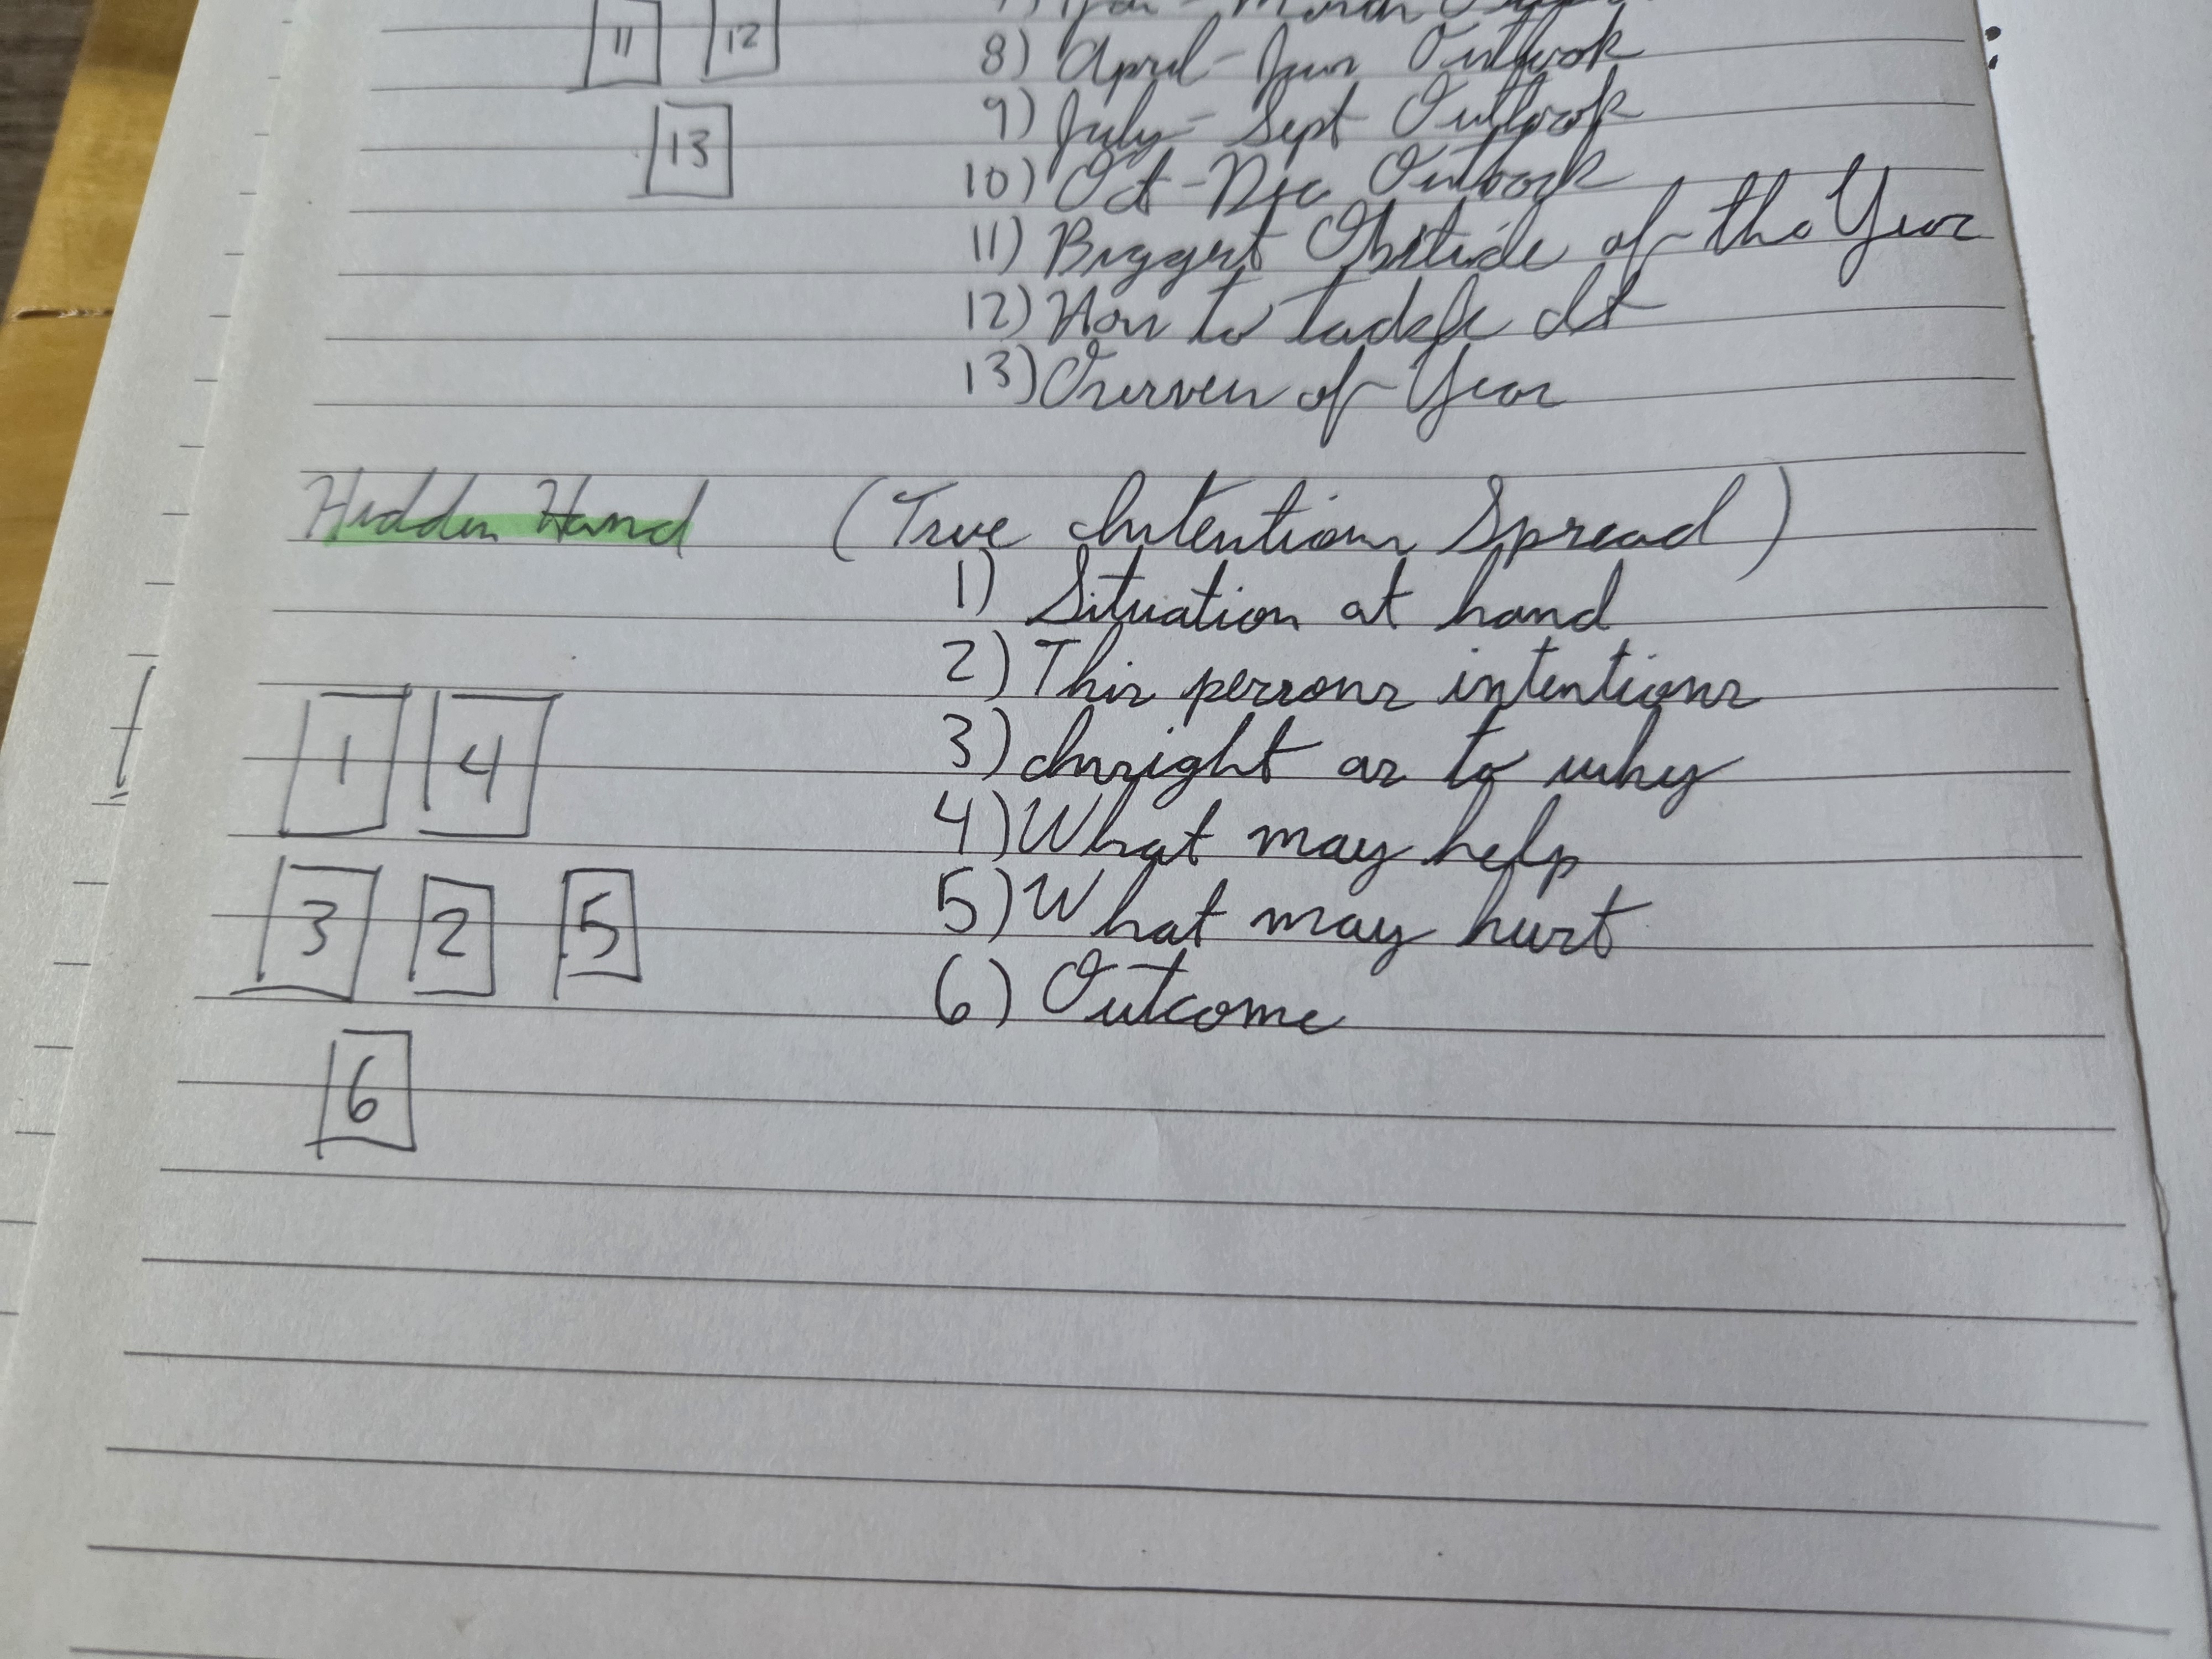 11 12
8) April - Jun Outlook
13
9) July - Sept Outlook
10) Oct - Dec Outlook
11) Biggest Obsticle of the Year
12) How to tackle It
13) Overview of Year
Hidden Hand (True Intentions Spread)
1) Situation at hand
2) This persons intentions
1 4
3) Insight as to why
4) What may help
3 2 5
5) What may hurt
6) Outcome
6